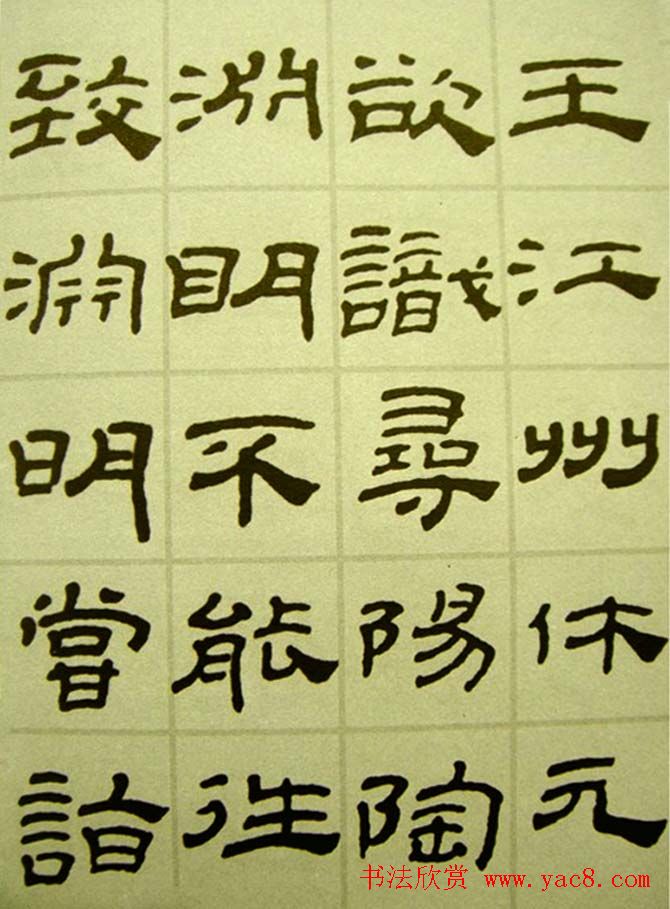 王江州休元
欲識尋陽陶
淵眀不能徃
致淵明嘗詣
书法欣赏 www.yac8.com